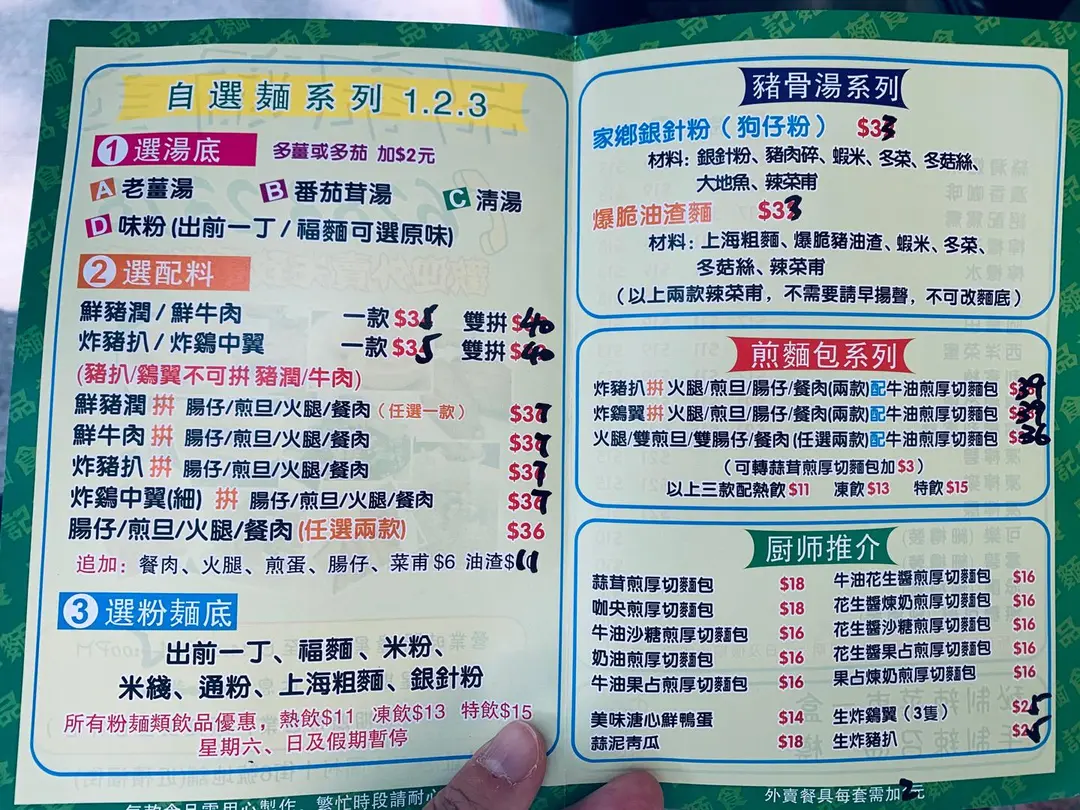 自選麵系列 1.2.3
1 選湯底 多薑或多茄 加$2元
A 老薑湯 B 番茄茸湯 C 清湯
D 味粉(出前一丁/福麵可選原味)
2 選配料
鮮豬潤/鮮牛肉 一款$35 雙拼$40
炸豬扒/炸鷄中翼 一款$35 雙拼$40
(豬扒/鷄翼不可拼 豬潤/牛肉)
鮮豬潤 拼 腸仔/煎旦/火腿/餐肉(任選一款) $37
鮮牛肉 拼 腸仔/煎旦/火腿/餐肉 $37
炸豬扒 拼 腸仔/煎旦/火腿/餐肉 $37
炸鷄中翼(細) 拼 腸仔/煎旦/火腿/餐肉 $37
腸仔/煎旦/火腿/餐肉(任選兩款) $36
追加：餐肉、火腿、煎蛋、腸仔、菜甫$6 油渣$10
3 選粉麵底
出前一丁、福麵、米粉、
米綫、通粉、上海粗麵、銀針粉
所有粉麵類飲品優惠，熱飲$11 凍飲$13 特飲$15
星期六、日及假期暫停
每款食品需用心製作，繁忙時段請耐心
豬骨湯系列
家鄉銀針粉（狗仔粉） $33
材料：銀針粉、豬肉碎、蝦米、冬菜、冬菇絲、
大地魚、辣菜甫
爆脆油渣麵 $33
材料：上海粗麵、爆脆豬油渣、蝦米、冬菜、
冬菇絲、辣菜甫
（以上兩款辣菜甫，不需要請早揚聲，不可改麵底）
煎麵包系列
炸豬扒拼火腿/煎旦/腸仔/餐肉(兩款)配牛油煎厚切麵包 $39
炸鷄翼拼火腿/煎旦/腸仔/餐肉(兩款)配牛油煎厚切麵包 $39
火腿/雙煎旦/雙腸仔/餐肉(任選兩款)配牛油煎厚切麵包 $36
（可轉蒜茸煎厚切麵包加$3）
以上三款配熱飲$11 凍飲$13 特飲$15
厨师推介
蒜茸煎厚切麵包 $18 牛油花生醬煎厚切麵包 $16
咖央煎厚切麵包 $18 花生醬煉奶煎厚切麵包 $16
牛油沙糖煎厚切麵包 $16 花生醬沙糖煎厚切麵包 $16
奶油煎厚切麵包 $16 花生醬果占煎厚切麵包 $16
牛油果占煎厚切麵包 $16 果占煉奶煎厚切麵包 $16
美味溏心鮮鴨蛋 $14 生炸鷄翼（3隻） $25
蒜泥青瓜 $18 生炸豬扒 $25
外賣餐具每套需加2元